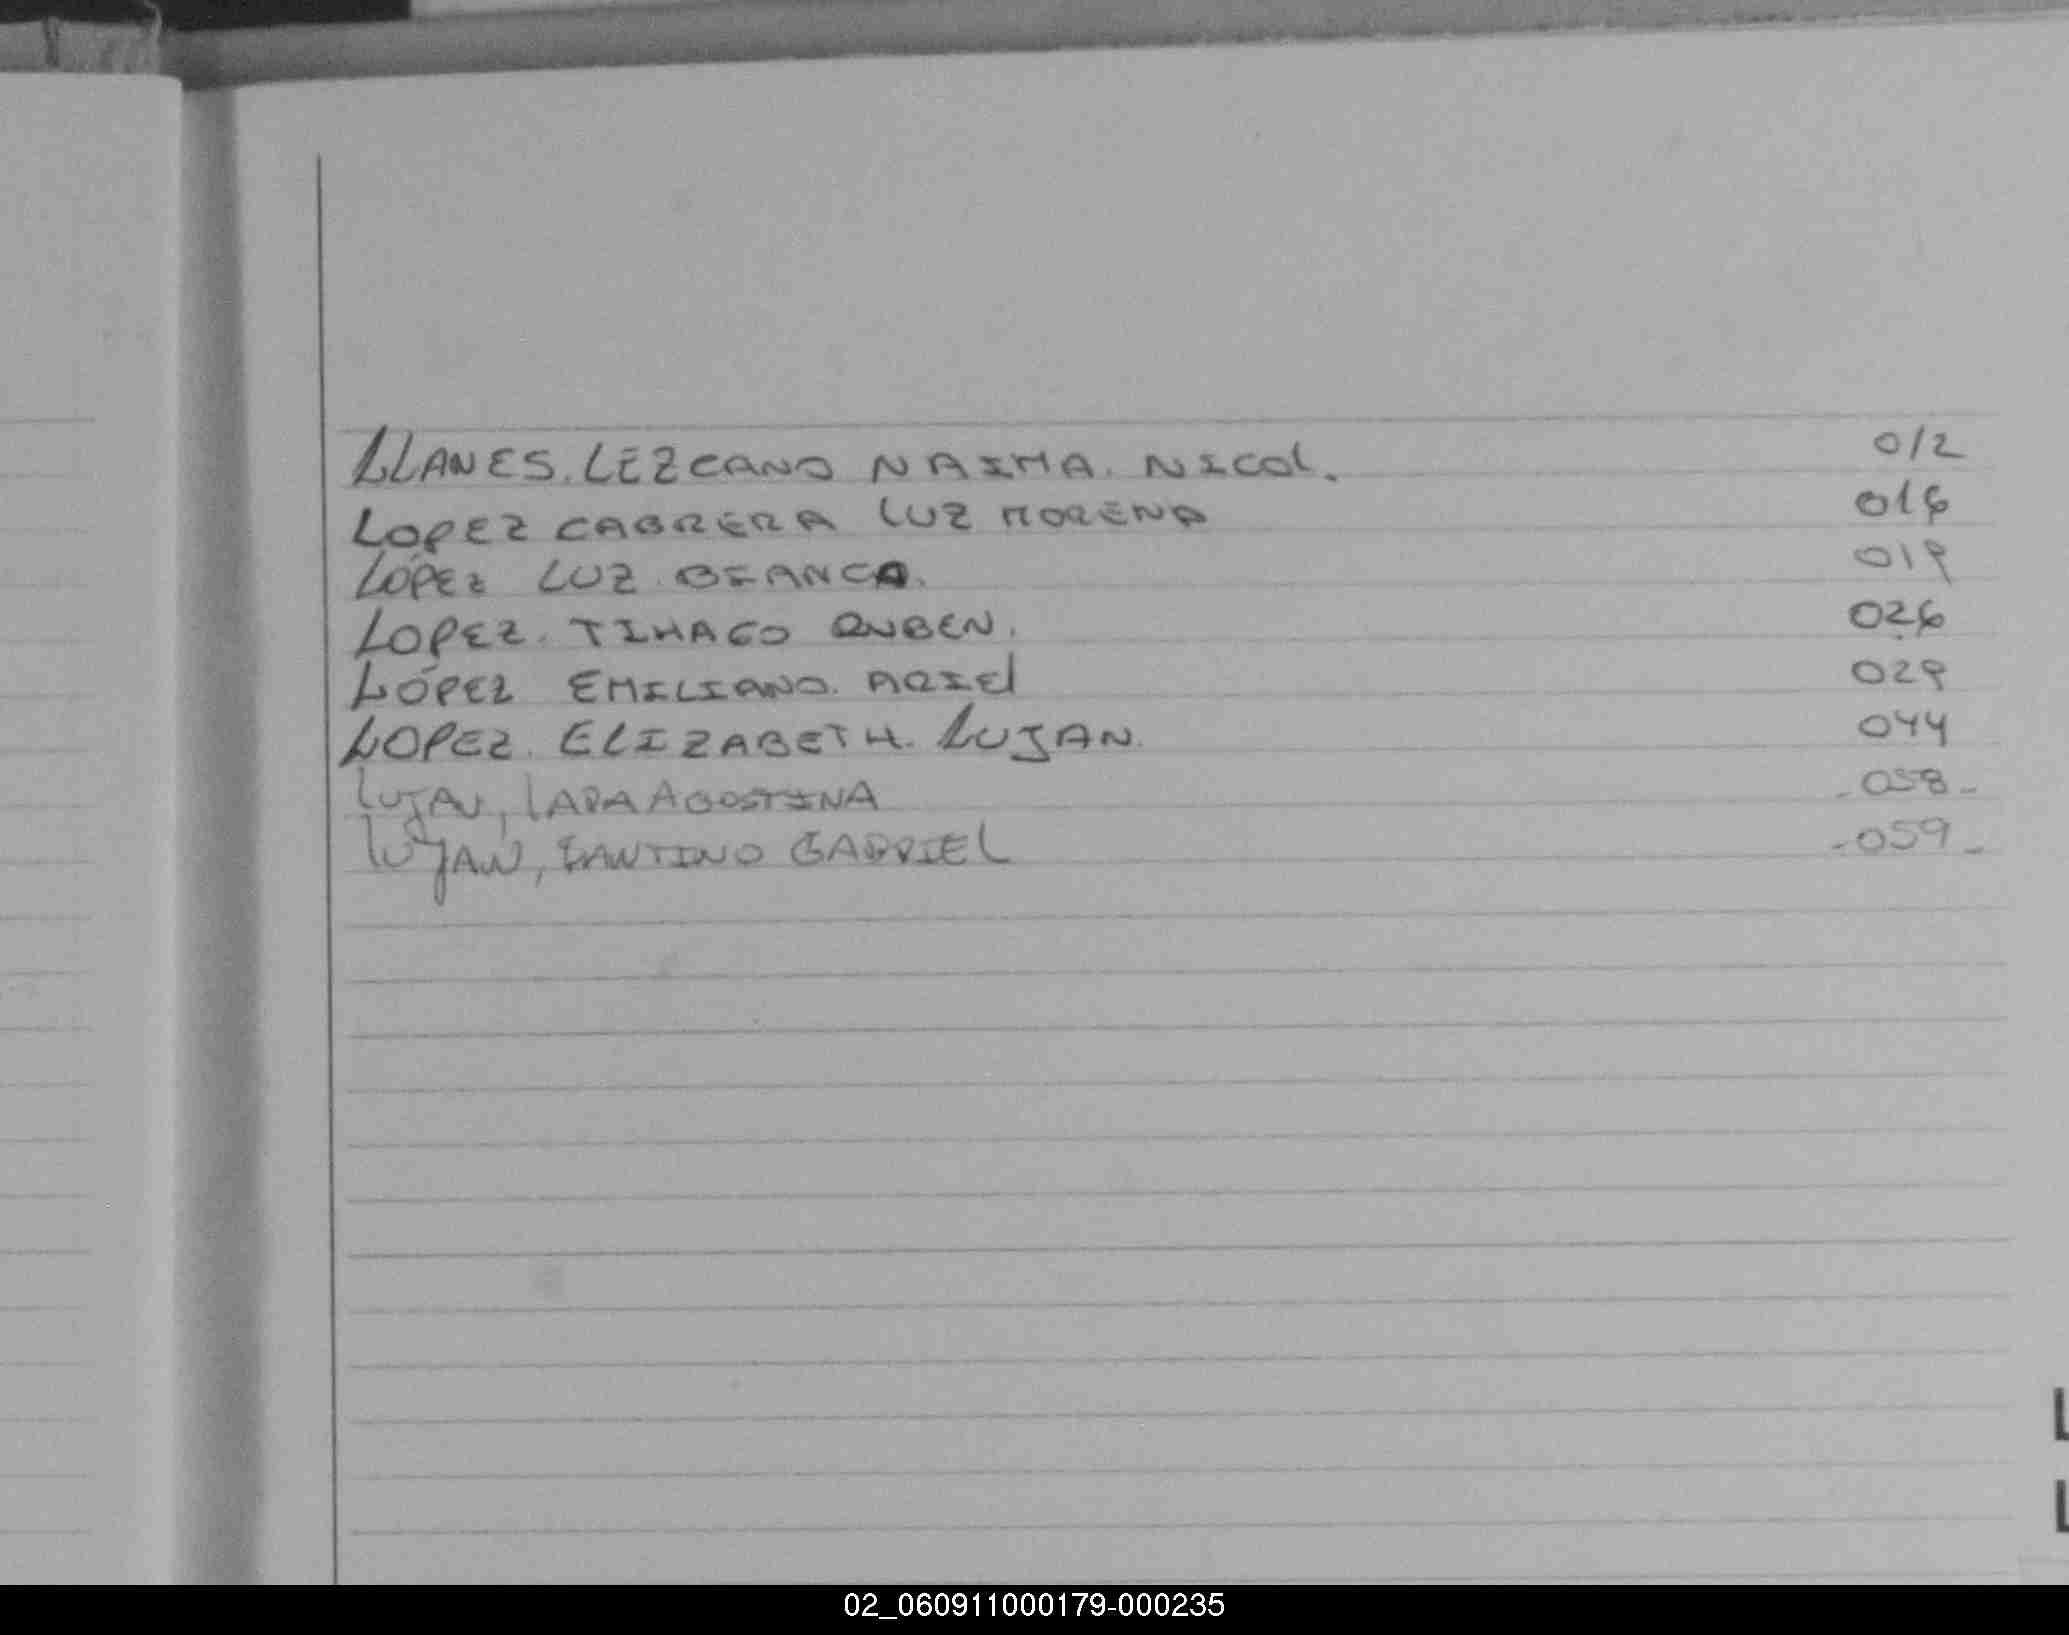 LLANES. LEZCANO NAIMA. NICOL. 012
LOPEZ CABRERA LUZ MORENA 016
LÓPEZ LUZ BIANCA. 019
LOPEZ. TIHAGO RUBEN. 026
LÓPEZ EMILIANO. ARIEL 029
LOPEZ. ELIZABETH. LUJAN. 044
LUJAN, LARA AGOSTINA -058-
LUJAN, SANTINO GABRIEL -059-
L
L
02_060911000179-000235